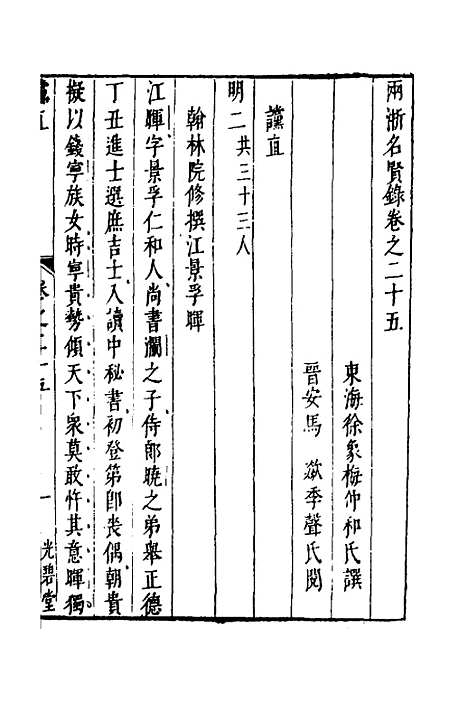 兩浙名賢錄卷之二十五
東海徐象梅仲和氏譔
晉安馬 歘季聲氏閱
讜直
明二共三十三人
翰林院修撰江景孚暉
江暉字景孚仁和人尚書瀾之子侍郎曉之弟舉正德
丁丑進士選庶吉士入讀中秘書初登第卽喪偶朝貴
擬以錢寧族女時寧貴勢傾天下衆莫敢忤其意暉獨
直
卷之二十五
一
光碧堂